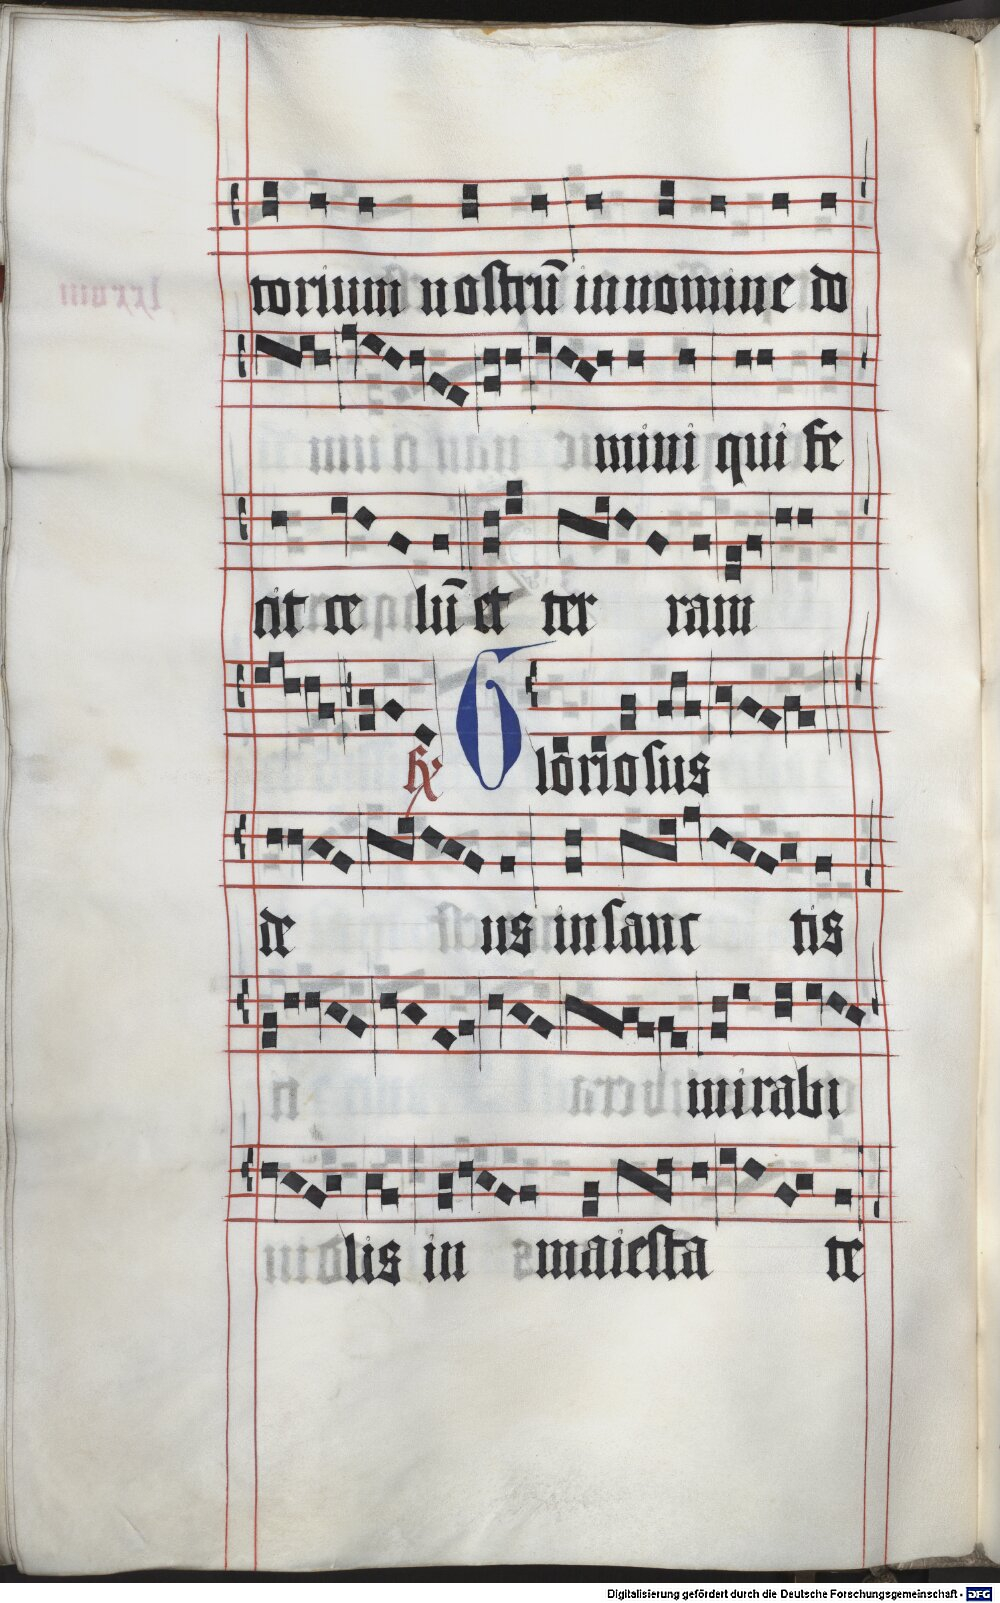 torium nostrū in nomine do
mini qui fe
cit ce lū et ter ram
℟ Gloriosus
de us in sanc tis
mirabi
lis in maiesta te
Digitalisierung gefördert durch die Deutsche Forschungsgemeinschaft - DFG